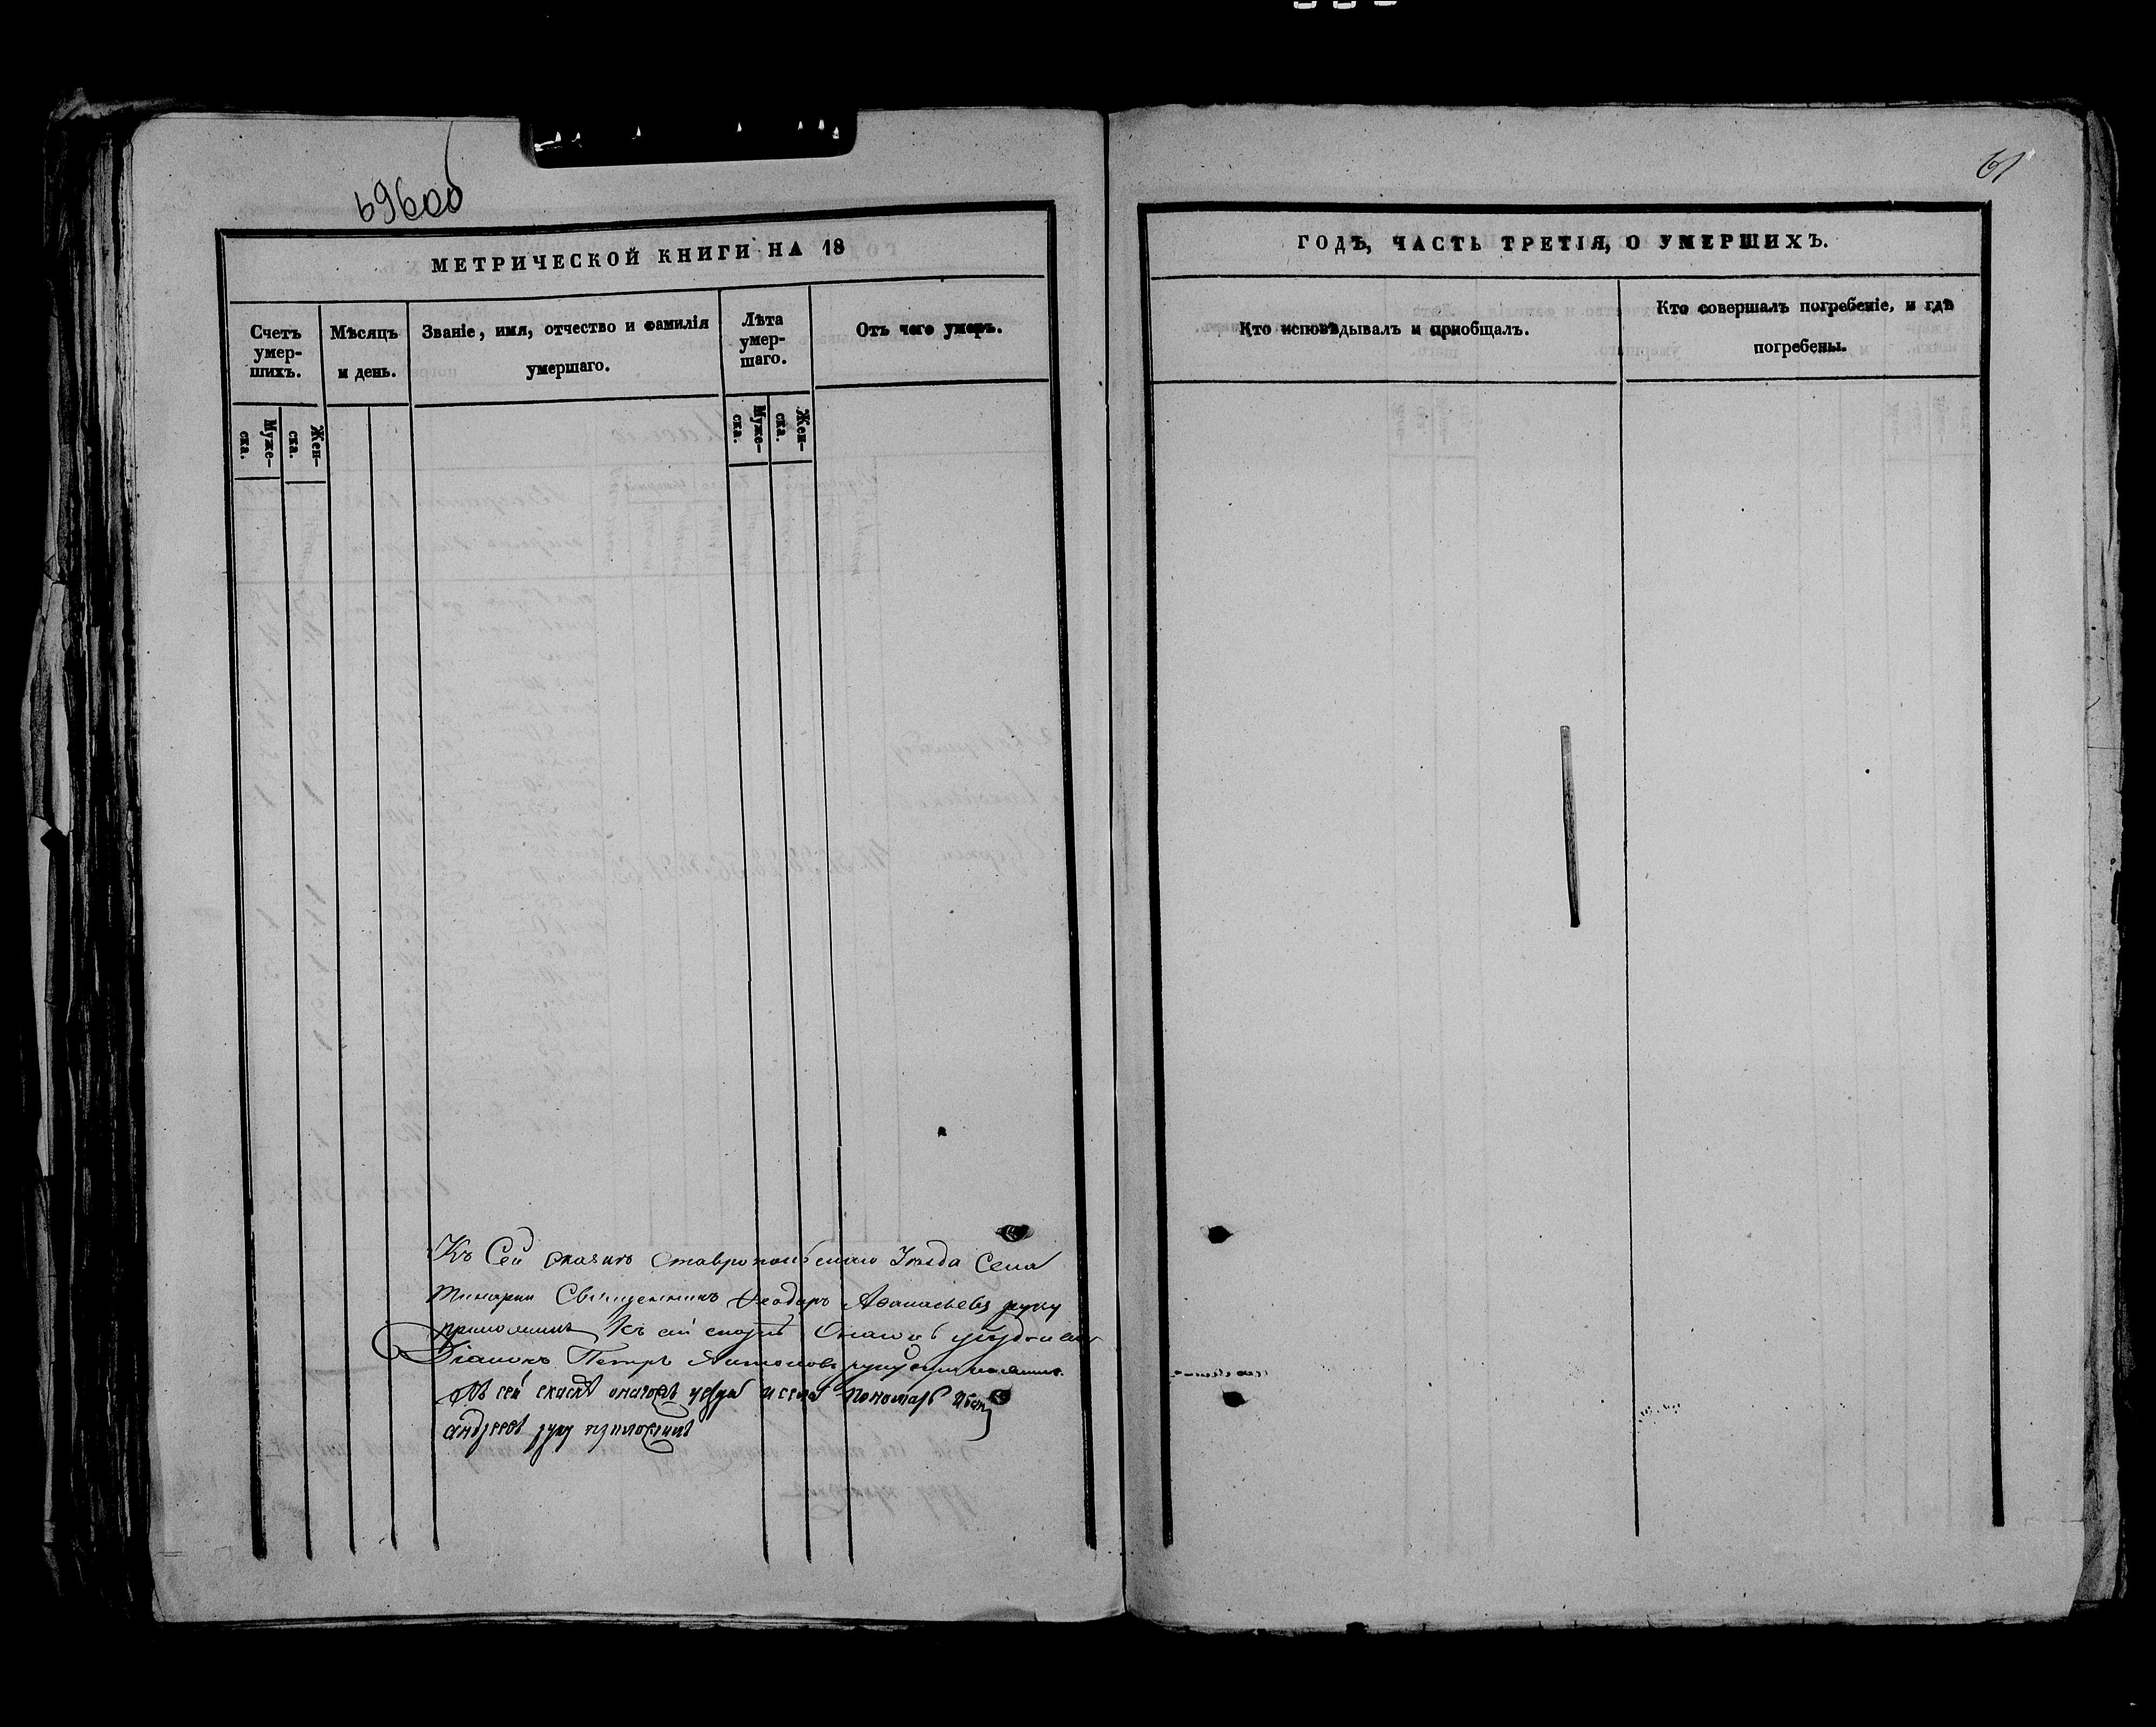 61
МЕТРИЧЕСКОЙ КНИГИ НА 18
ГОДЪ, ЧАСТЬ ТРЕТІЯ, О УМЕРШИХЪ.
Счетъ умер-шихъ.
Муже-ска.
Жен-ска.
Мѣсяцъ и день.
Званіе, имя, отчество и фамилія умершаго.
Лѣта умер-шаго.
Муже-ска.
Жен-ска.
Отъ чего умеръ.
Кто исповѣдывалъ и пріобщалъ.
Кто совершалъ погребеніе, и гдѣ погребены.
Къ Сей Ставропольскаго Уѣзда Села
Священникъ Ѳеодоръ Аѳанасьевъ руку
приложилъ Къ сей
Діаконъ Петръ Антоновъ руку приложилъ
сей и села Пономарь Иванъ
андреевъ руку приложилъ